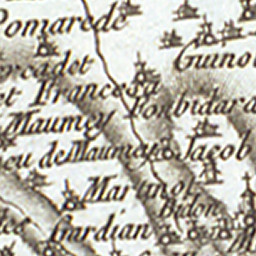 Pomarede
Guino
ercadet
et Francesa
Ponbidara
Maumey
eu de Maumay
Jacob
Martinot
Bidon
Gardian